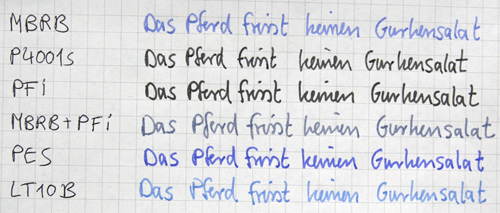 MBRB Das Pferd frisst keinen Gurkensalat
P4001s Das Pferd frisst keinen Gurkensalat
PFi Das Pferd frisst keinen Gurkensalat
MBRB+PFi Das Pferd frisst keinen Gurkensalat
PES Das Pferd frisst keinen Gurkensalat
LT10B Das Pferd frisst keinen Gurkensalat